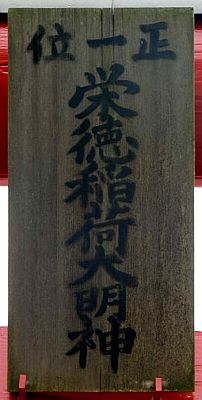 正一位
栄徳稲荷大明神